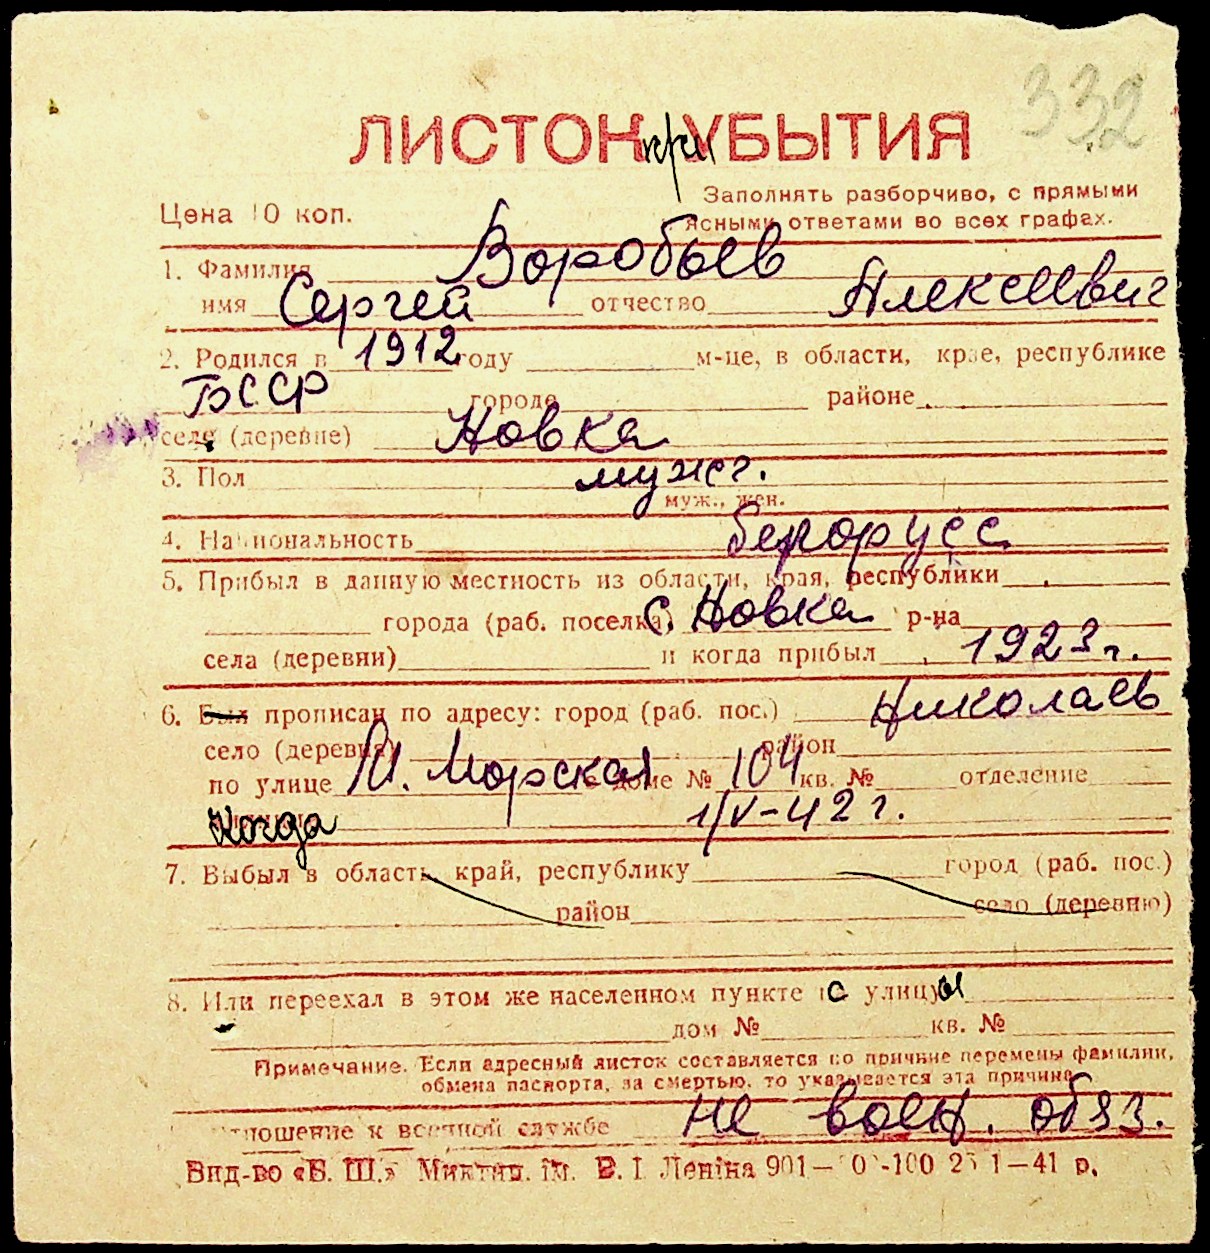 332
ЛИСТОК при УБЫТИЯ
Заполнять разборчиво, с прямыми
Цена 10 коп. ясными ответами во всех графах.
1. Фамилия Воробьев
имя Сергей отчество Алексеевич
2. Родился в 1912 году м-це, в области, крае, республике
БССР городе районе
селе (деревне) Новка
3. Пол мужс.
муж., жен.
4. Национальность белорусс
5. Прибыл в данную местность из области, края, республики
города (раб. поселка) с. Новка р-на
села (деревни) и когда прибыл 1923 г.
6. Был прописан по адресу: город (раб. пос.) Николаев
село (деревня) район
по улице М. Морская в доме № 104 кв. № отделение
Когда 1/V-42 г.
7. Выбыл в область, край, республику город (раб. пос.)
район село (деревню)
8. Или переехал в этом же населенном пункте с улицы
дом № кв. №
Примечание. Если адресный листок составляется по причине перемены фамилии,
обмена паспорта, за смертью, то указывается эта причина
Отношение к военной службе не воен. обяз.
Вид-во «Б. Ш.» Миктип. ім. В. І. Леніна 901— -100 1—41 р.